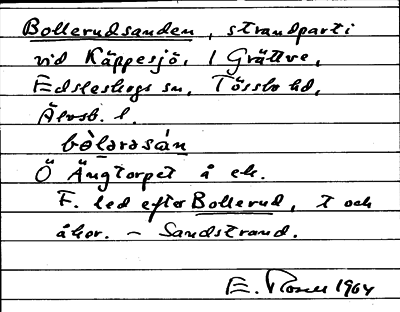 Bollerudsanden, strandparti
vid Käppesjö, 1 Grättve,
Edsleskogs sn, Tössbo hd,
Älvsb. l.
bòlərəsán
Ö Ängtorpet å ek.
F. led efter Bollerud, t och
åkor. – Sandstrand.
E. 1964